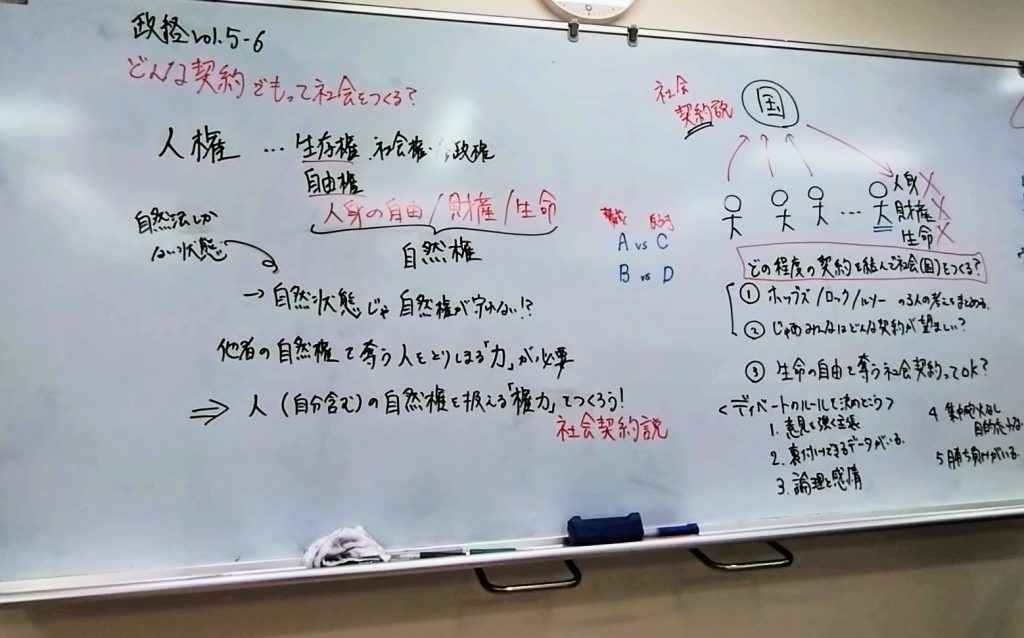 政経vol.5-6
どんな契約でもって社会をつくる?
人権 … 生存権 社会権 政権
自由権
人身の自由/財産/生命
自然権
自然法しか
ない状態
→自然状態じゃ自然権が守れない!?
他者の自然権を奪う人をとりしまる「力」が必要
⇒ 人(自分含む)の自然権を扱える「権力」をつくろう!
社会契約説
賛成 反対
A vs C
B vs D
社会
契約説
国
… 人身 X
財産 X
生命 X
どの程度の契約を結んで社会(国)をつくる?
① ホッブズ/ロック/ルソーの3人の考えをまとめる.
② じゃあみんなはどんな契約が望ましい?
③ 生命の自由を奪う社会契約ってOK?
<ディベートのルールを決めとこう>
1. 意見を強く主張
2. 裏付けできるデータがいる.
3. 論理と感情
4 集中砲火なし
目的
5 勝ち負けがいる.